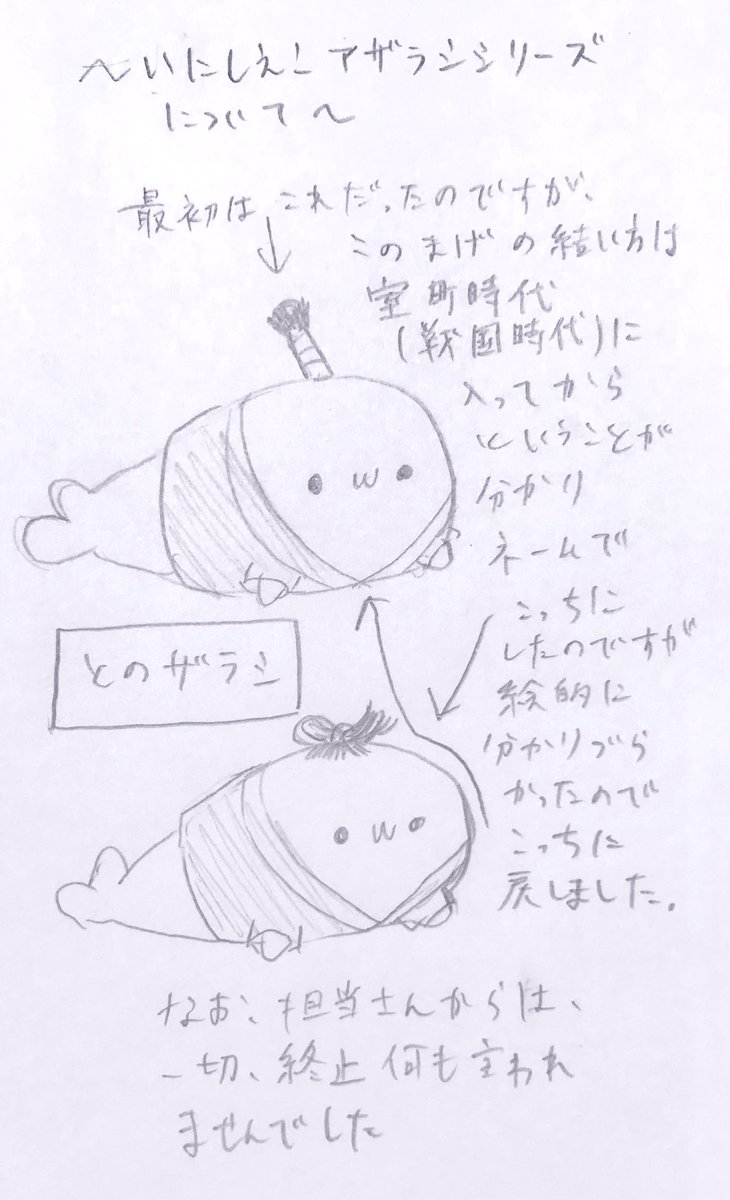 〜いにしえ!アザラシシリーズ
について〜
最初はこれだったのですが、
このまげの結い方は
室町時代
(戦国時代)に
入ってから
ということが
分かり
ネームで
こっちに
したのですが
絵的に
分かりづら
かったので
こっちに
戻しました。
とのザラシ
なお、担当さんからは、
一切、終止何も言われ
ませんでした